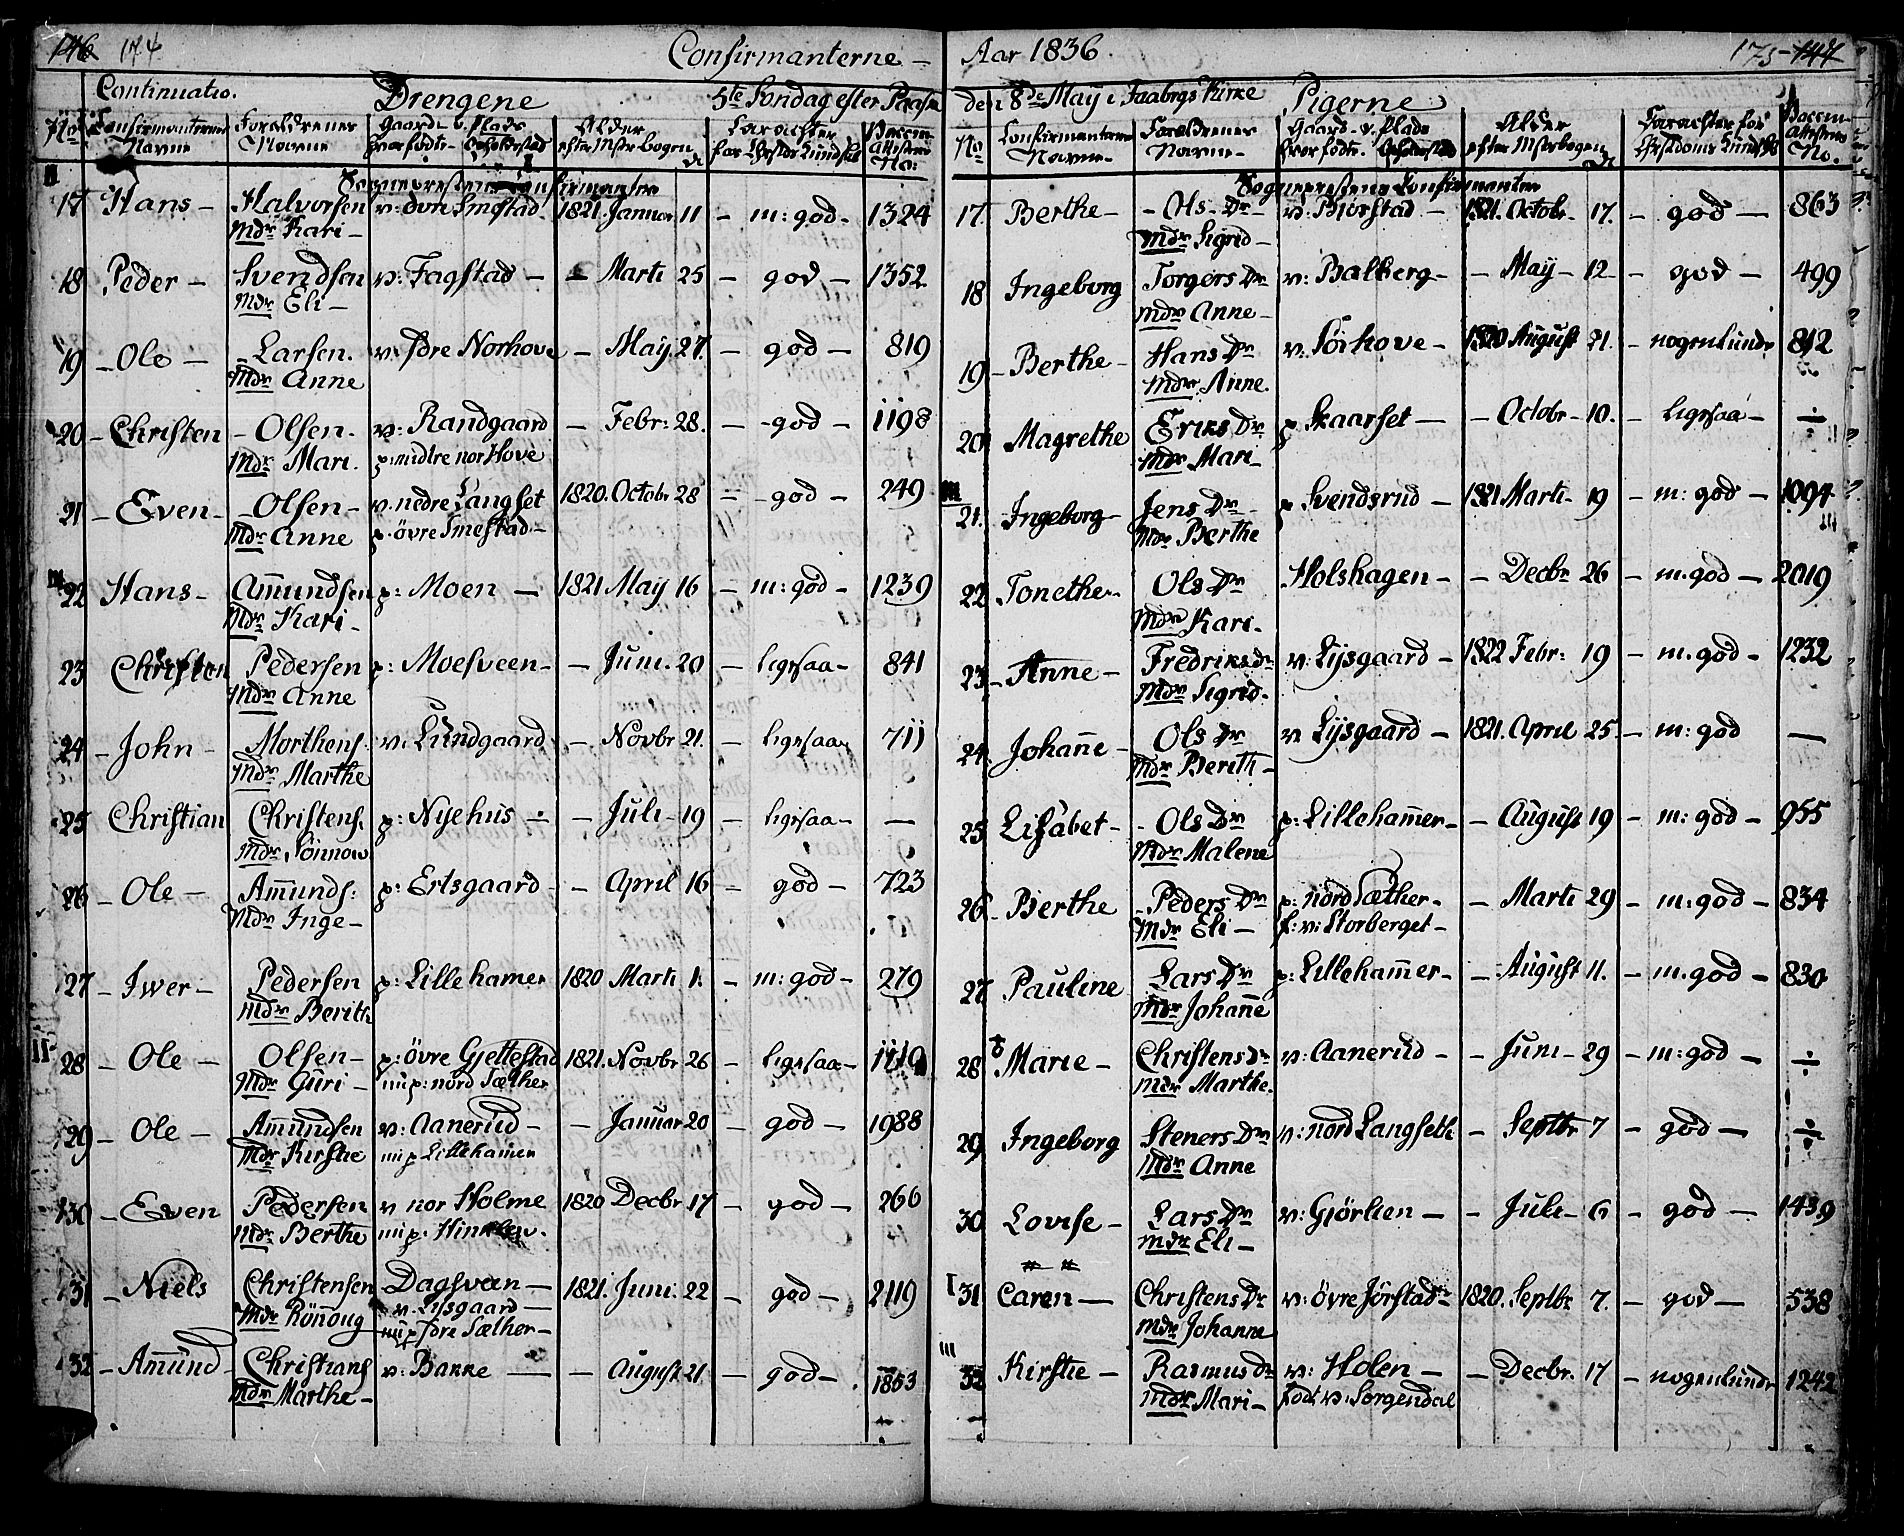 146 174 Confirmanterne –
Continuatio. Drengene 5te Søndag efter Paaske
No Confirmanternes Navne Forældrenes Navne Gaard v. Plads hvor fødte Alder efter Mster bogen Carachter for Christd: Kundsk: Vaccin: Attestens No:
Sognepræstens Confirmanter
17 Hans – Halvorsen v: övre Smestad 1821 Januar 11 – m: god – 1324
Mdr Kari –
18 Peder – Svendsen v: Fagstad – – Marti 25 – god – 1352
Mdr Eli –
19 – Ole – Larsen. v: sdre Norhove – May. 27. – god – 819
Mdr Anne
20 – Christen – Olsen. v: Randgaard – Febr: 28. – god – 1198
Mdr Mari. p: midtre nor Hove
21 – Even – Olsen – v. nedre Langset 1820. Octobr 28 – god – 249
Mdr Anne p: övre Smestad –
22 Hans – Amundsen p: Moen – 1821 May 16 – m: god – 1239
Mdr Kari –
23 Christen Pedersen p: Moesveen – – Juni. 20 – ligesaa – 841
Mdr Anne
24 – John – Morthens. v: Lundgaard – Novbr 21. – ligesaa 711
Mdr Marthe
25 Christian Christens. p: Nyehus – – Juli – 19 – ligesaa – —
Mdr Sönnow
26 Ole – Amunds: p: Ertsgaard – – April 16 – god – 723
Mdr Inge –
27 – Iwer – Pedersen p: Lillehamer 1820 Marti 1. – m: god – 279
Mdr Berith
28 Ole – Olsen – p: övre Gjettestad 1821. Novbr 26 – ligesaa –
Mdr Guri – nu p: nord Sæther
29 – Ole – Amundsen v: Aanerud – – Januar 20 – god – 1988
Mdr Kirstie nu p Lillehamer
30 – Even Pedersen v nor Holme 1820 Decbr 17 – god – 266
Mdr Berthe nu p:
31 – Niels Christensen Dagsvæn – 1821. Juni. 22 – god – 2119
Mdr Rönnoug v: Lysgaard –
nu p sdre Sæther –
32 – Amund Christians v: Bakke – — August 21. – god – 1853
Mdr Marthe –
Aar 1836. 175 – 147
den 8de May i Faabergs Kirke Pigerne
No Confirmanternes Navne – Forældrenes Navne – Gaard v. Plads hvor fødte. Alder efter Msterbogen Carachter for Christdoms Kundsk: Vaccin: Attestens No.
Sognepræstens Confirmanter
17. Berthe – – Ols Dr v: Bjørstad – 1821. Octobr – 17. – god – 863
Mdr Sigrid –
18 Ingeborg Torgers Dr v: Balberg – – May – 12 – god – 499
Mdr Anne –
19 – Berthe – Hans Dr v: Sörhove – 1820 August 21. – nogenlunde 812
Mdr Anne.
20 Magrethe Eriks Dr p Skaarset – – Octobr – 10. – ligesaa ÷
Mdr Mari –
21. Ingeborg Jens Dr – p Svendsrud – 1821 Marti – 19 – m: god – 1094
Mdr Berthe
22 Tonethe – Ols Dr Holshagen – – Decbr 26 – m. god – 2019
Mdr Kari –
23 – Anne – Fredriks Dr v: Lysgaard – 1822 Febr: 19 – m. god – 1232
Mdr Sigrid.
24 Johanne – Ols Dr v: Lysgaard – 1821. April 25 – m: god —
Mdr Berith –
25 Lisabet – – Ols Dr p: Lillehammer – – August 19 – m: god – 955
Mdr Malene
26 – Berthe – Peders Dr p: nord Sæther – – Marti 29 – m: god – 834
Mdr Eli – f: v: Storberget –
27 Pauline Lars Dr p: Lillehammer – – August 11. – m. god – 830
Mdr Johanne
28 Marie – Christens Dr v: Aanerud – – Juni – 29 – m: god – ÷
Mdr Marthe.
29 Ingeborg Steners Dr v: nord Langseth – Septbr 7 – god – ÷
Mdr Anne
30 Lovise – Lars Dr v: Gjörlien – – Juli – 6 – god – 1439
Mdr Eli –
31 Caren – Christens Dr v: övre Jörstad – 1820. Septbr 7. – god – 538
Mdr Johanne
32 Kirstie – Rasmus Dr v: Holen – – Decbr. 17 – nogenlunde 1242
Mdr Mari – födt v: Sorgendal